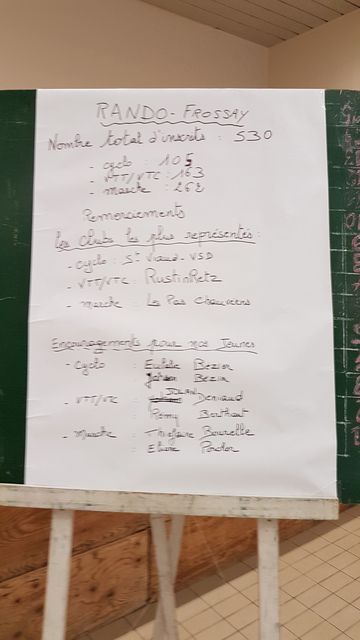 RANDO-FROSSAY
Nombre total d'inscrits : 530
- cyclo : 105
- VTT/VTC : 163
- marche : 262
Remerciements
Les clubs les plus représentés :
- cyclo : St Viaud - VSD
- VTT/VTC : Rustin Retz
- marche : Les Pas Chauvéens
Encouragements pour nos Jeunes
- Cyclo : Bezier
Bezier
- VTT/VTC : JULIAN Deniaud
: Rémy Berthaut
- Marche : Bourelle
: Porcher